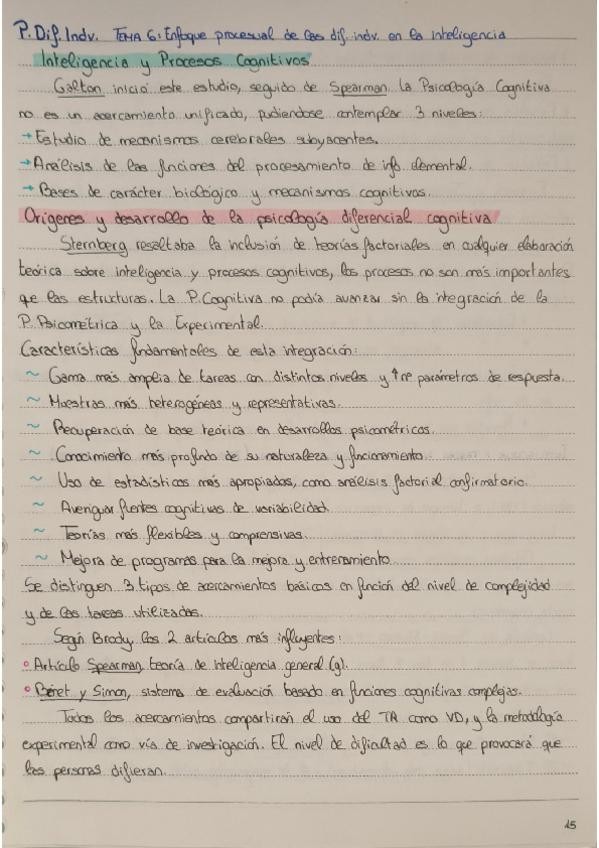 P. Dif. Indv. TEMA 6: Enfoque procesual de las dif. indv. en la inteligencia
Inteligencia y Procesos Cognitivos
Galton inició este estudio, seguido de Spearman. La Psicología Cognitiva
no es un acercamiento unificado, pudiendose contemplar 3 niveles:
→ Estudio de mecanismos cerebrales subyacentes.
→ Análisis de las funciones del procesamiento de info. elemental.
→ Bases de carácter biológico y mecanismos cognitivos.
Orígenes y desarrollo de la psicología diferencial cognitiva
Sternberg resaltaba la inclusión de teorías factoriales en cualquier elaboración
teórica sobre inteligencia y procesos cognitivos, los procesos no son más importantes
que las estructuras. La P. Cognitiva no podía avanzar sin la integración de la
P. Psicométrica y la Experimental.
Características fundamentales de esta integración:
~ Gama más amplia de tareas con distintos niveles y ↑nº parámetros de respuesta.
~ Muestras más heterogéneas y representativas.
~ Recuperación de base teórica en desarrollos psicométricos.
~ Conocimiento más profundo de su naturaleza y funcionamiento.
~ Uso de estadísticos más apropiados, como análisis factorial confirmatorio.
~ Averiguar fuentes cognitivas de variabilidad.
~ Teorías más flexibles y comprensivas.
~ Mejora de programas para la mejora y entrenamiento
Se distinguen 3 tipos de acercamientos básicos en función del nivel de complejidad
y de las tareas utilizadas.
Según Brody los 2 artículos más influyentes:
° Artículo Spearman, teoría de inteligencia general (g).
° Binet y Simon, sistema de evaluación basado en funciones cognitivas complejas.
Todos los acercamientos compartiran el uso del TA como VD, y la metodología
experimental como vía de investigación. El nivel de dificultad es lo que provocará que
las personas difieran.
15